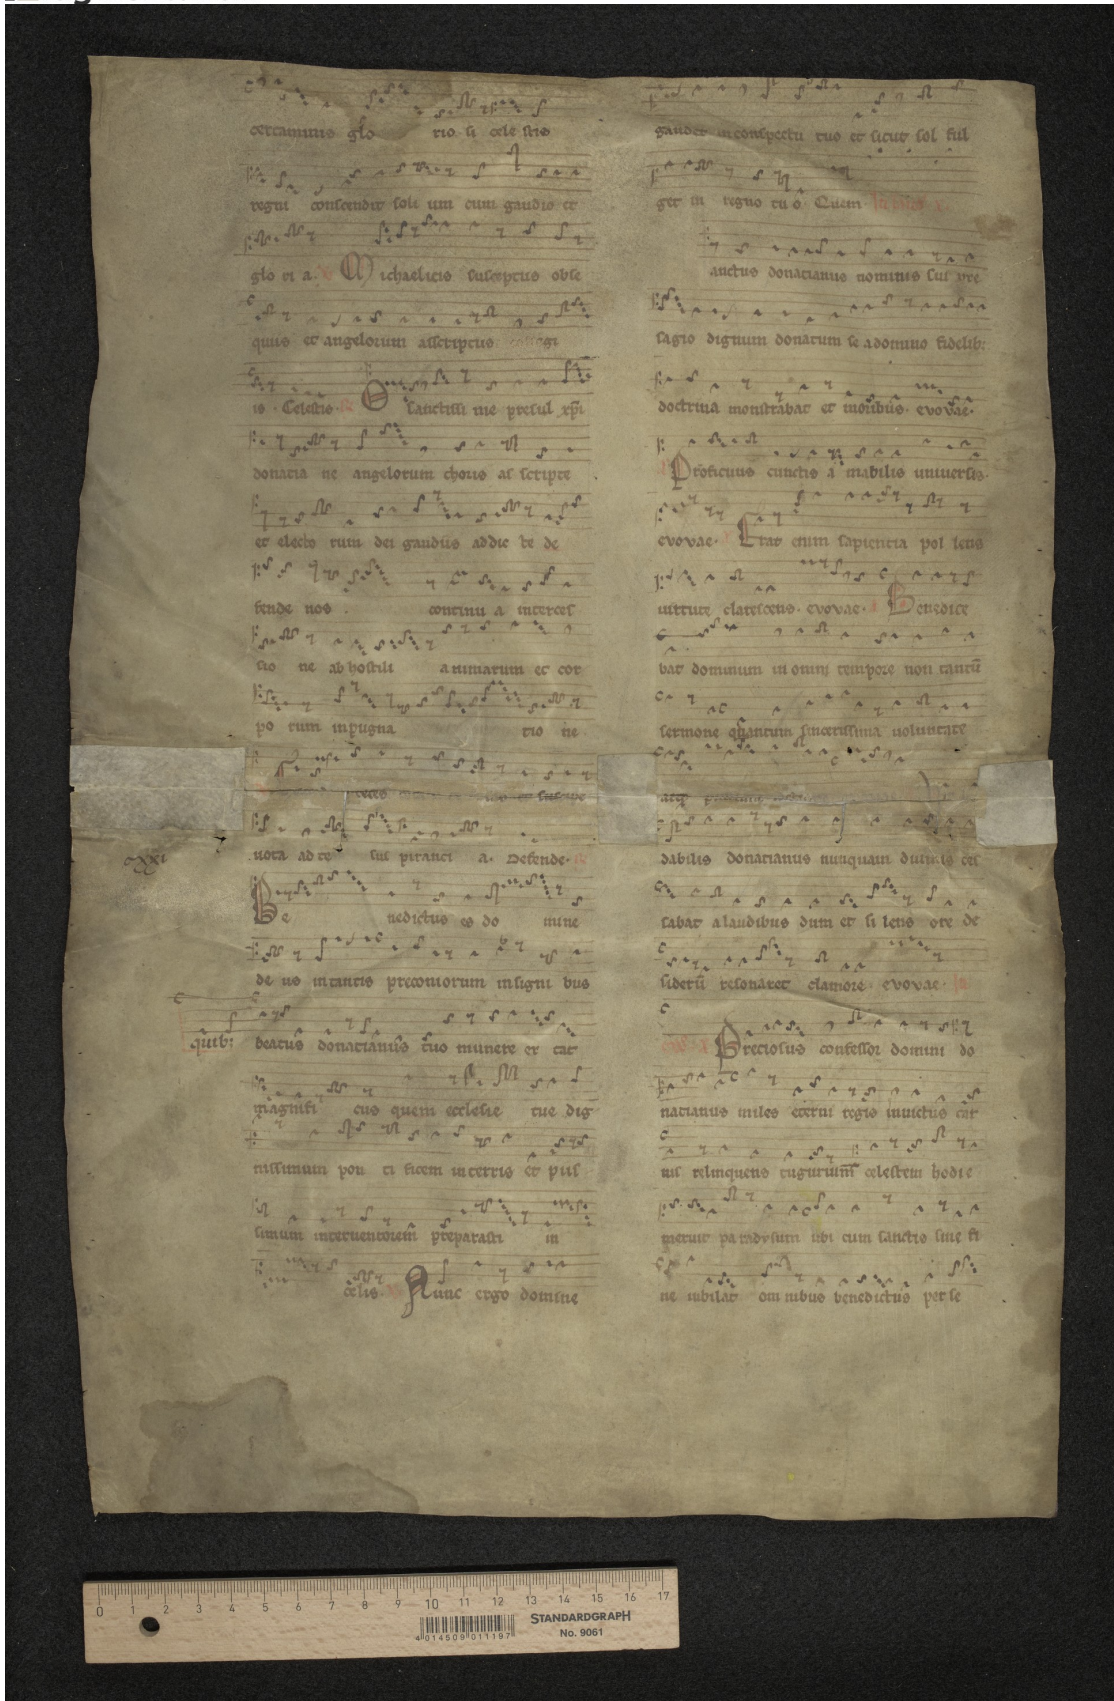 certaminis glo rio si cele stis
regni conscendit soli um cum gaudio et
glo ri a. Michaelicis susceptus obse
quiis et angelorum asscriptus colle gi
is. Celestis. O sanctissi me presul xpi
donatia ne angelorum choris as scripte
et electo rum dei gaudiis addic te de
fende nos continu a interces
sio ne ab hostili animarum et cor
po rum inpugna tio ne
preces
uota ad te sus piranti a. Defende.
cxxi
Be nedictus es do mine
de us in tantis preconiorum insigni bus
quib; beatus donatianus tuo munere er cat
magnifi cus quem ecclesie tue dig
nissimum pon ti ficem in terris et piis
simum interuentorem preparasti in
celis. Nunc ergo domine
gaudet in conspectu tuo et sicut sol ful
get in regno tu o. Quem.
anctus donatianus nominis sui pre
sagio dignum donatum se a domino fidelib;
doctrina monstrabat et moribus. evovae.
Proficuus cunctis a mabilis universis.
evovae. Erat enim sapientia pol lens
uirtute clarescens. evovae. Benedice
bat dominum in omni tempore non tantu
sermone quantum sincerissima uoluntate
dabilis donatianus nunquam dulcis ces
sabat a laudibus dum et si lens ore de
sideriu resonaret clamore. evovae.
Preciosus confessor domini do
natianus miles eterni regis inuictus car
nis relinquens tugurium celestem hodie
meruit paradysum ubi cum sanctis sine fi
ne iubilat omnibus benedictus per se
0 1 2 3 4 5 6 7 8 9 10 11 12 13 14 15 16 17
STANDARDGRAPH
No. 9061
4 014509 011197